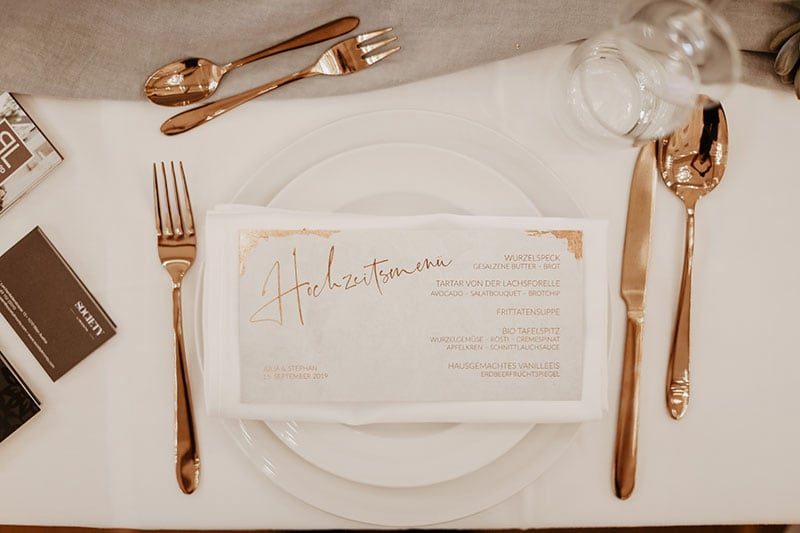 Hochzeitsmenü
WURZELSPECK
GESALZENE BUTTER - BROT
TARTAR VON DER LACHSFORELLE
AVOCADO - SALATBOUQUET - BROTCHIP
FRITTATENSUPPE
BIO TAFELSPITZ
WURZELGEMÜSE - RÖSTI - CREMESPINAT
APFELKREN - SCHNITTLAUCHSAUCE
HAUSGEMACHTES VANILLEEIS
ERDBEERFRUCHTSPIEGEL
JULIA & STEPHAN
15. SEPTEMBER 2019
SOCIETY